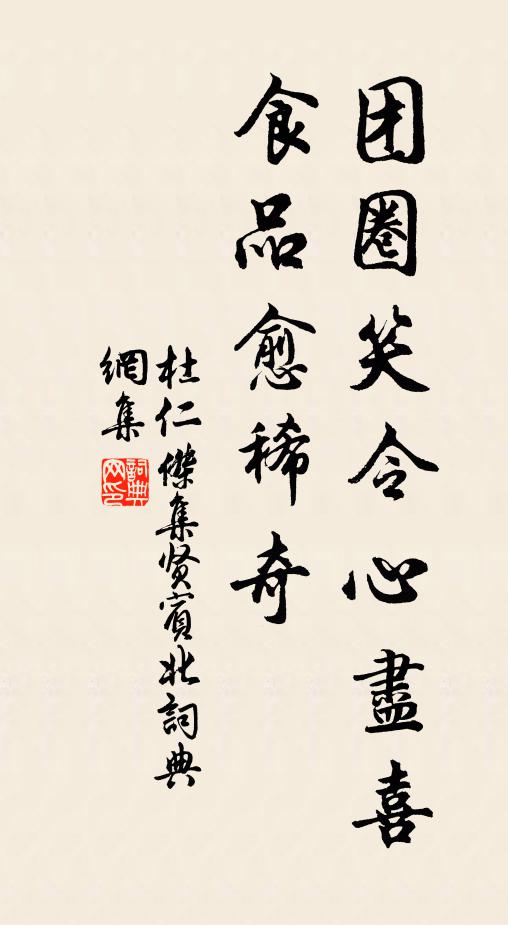 团圈笑令心盡喜
食品愈稀奇
杜仁傑集贤賓北詞典
網集
詞典網印